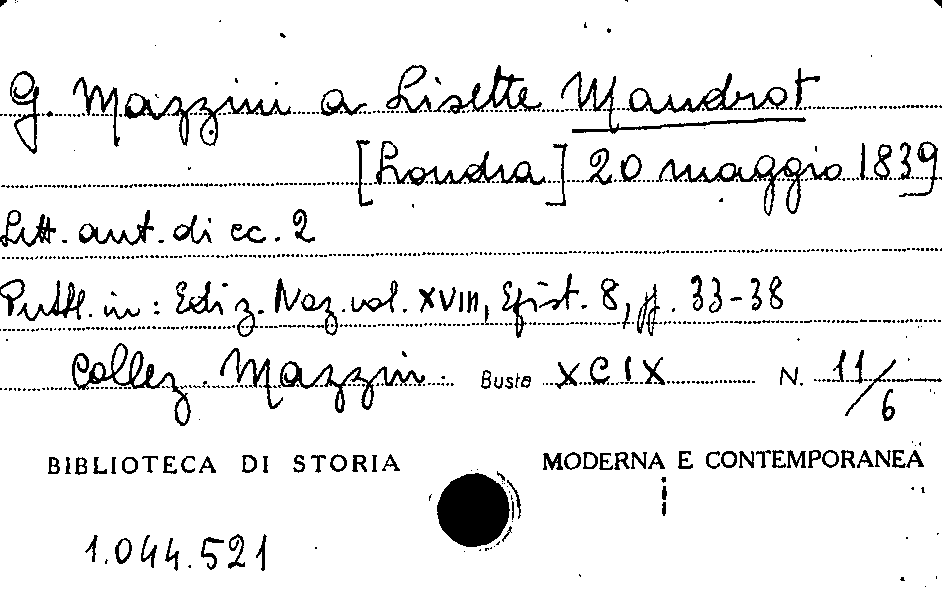 G. Mazzini a Lisette Mandrot
[Londra] 20 maggio 1839
Lett. aut. di cc. 2
Pubbl. in: Ediz. Naz. vol. XVIII, Epist. 8, pp. 33-38
Collez. Mazzini. Busta XCIX N. 11/6
BIBLIOTECA DI STORIA MODERNA E CONTEMPORANEA
1.044.521